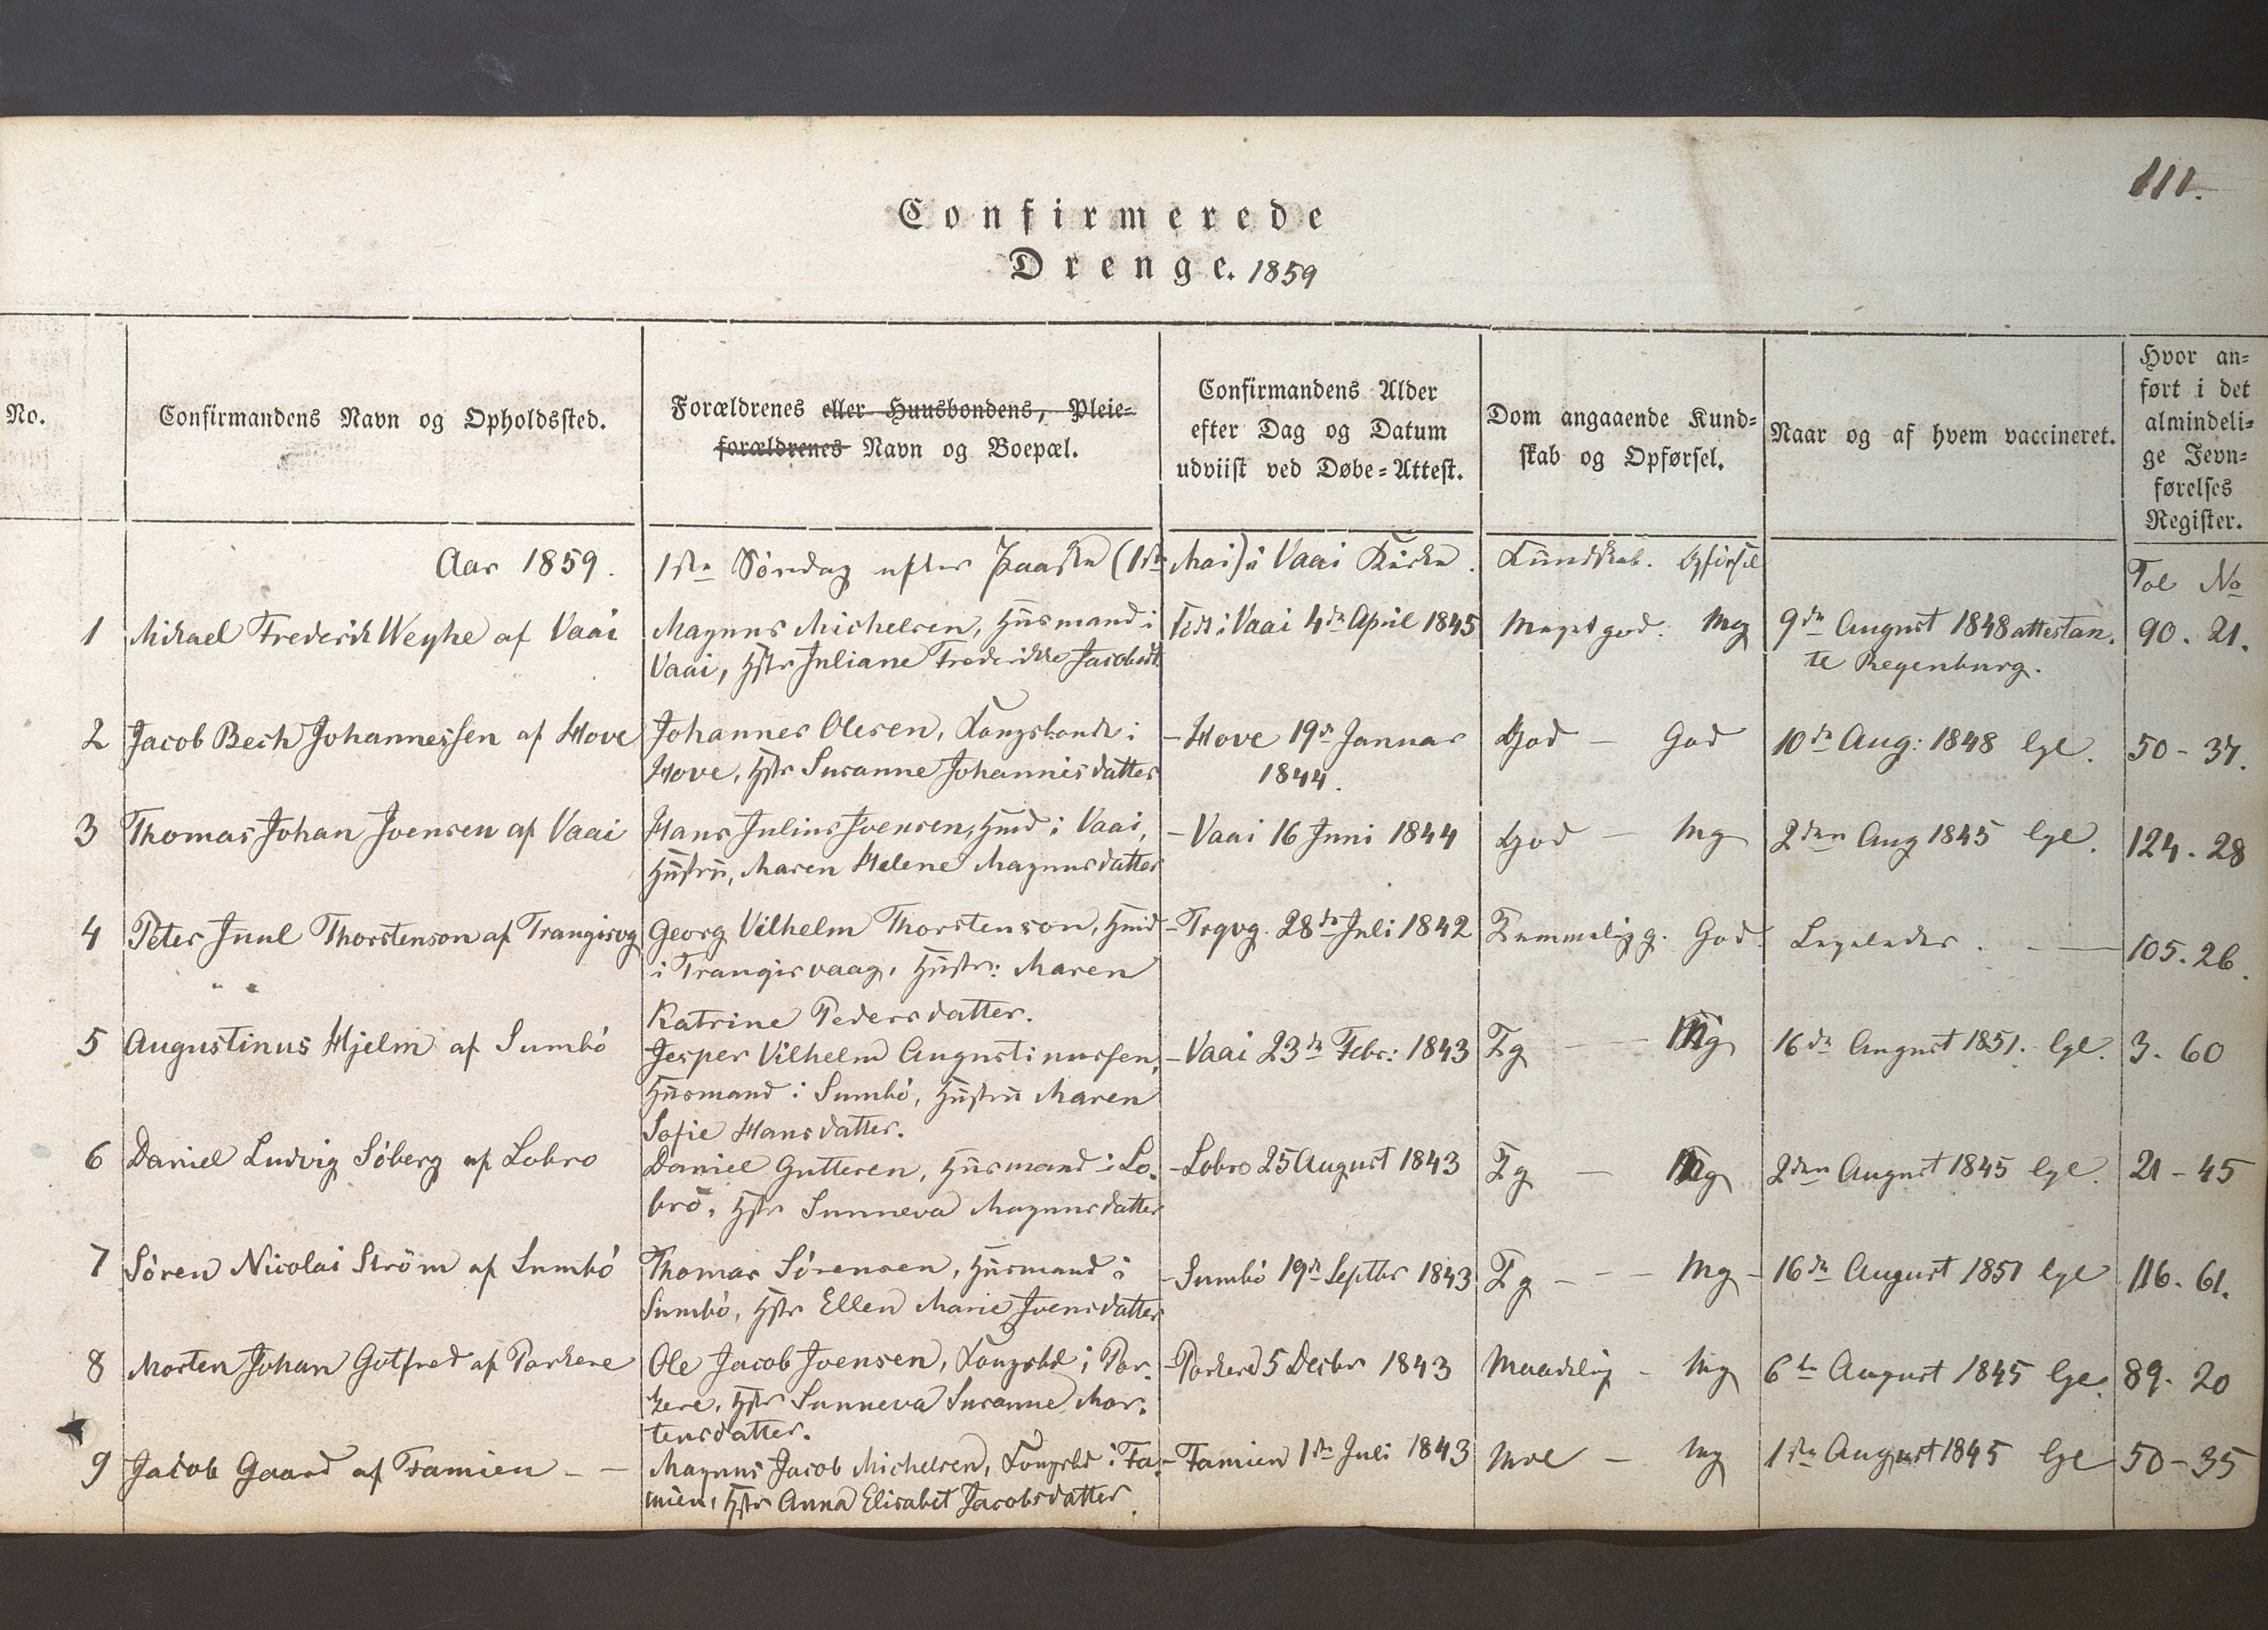 111.
Confirmerede
Drenge. 1859
No.
Confirmandens Navn og Opholdssted.
Forældrenes eller Huusbondens, Pleie=
forældrenes Navn og Boepæl.
Confirmandens Alder
efter Dag og Datum
udviist ved Døbe=Attest.
Dom angaaende Kund=
skab og Opførsel.
Naar og af hvem vaccineret.
Hvor an=
ført i det
almindeli=
ge Jevn=
førelses
Register.
Aar 1859. 1ste Søndag efter Paaske (1ste Mai) i Vaai Kirke. Kundskab. Opførsel
Fol No
1 Mikael Frederik Weyhe af Vaai Magnus Michelsen, Husmand i Født i Vaai 4de April 1845 Meget god. Mg 9de August 1848 attestan. 90. 21.
Vaai, Hstr Juliane Frederikke Jacobsdt te Regenburg.
2 Jacob Bech Johannessen af Hove Johannes Olesen, Kongsbonde i - Hove 19de Januar God - God 10de Aug: 1848 lgl. 50 - 37.
Hove, Hstr Susanne Johannisdatter 1844.
3 Thomas Johan Joensen af Vaai Hans Julius Joensen, Hmd i Vaai, - Vaai 16 Juni 1844 God - Mg 2den Aug 1845 lgl. 124. 28
Hustru, Maren Helene Magnusdatter
4 Peter Juul Thorstenson af Trangisvg Georg Vilhelm Thorstenson, Hmd - Trgvg. 28de Juli 1842 Temmelig g. God. Ligeledes. - 105. 26.
i Trangisvaag, Hustr: Maren
Katrine Pedersdatter.
5 Augustinus Hjelm af Sumbö Jesper Vilhelm Augustinussen, - Vaai 23de Febr: 1843 Tg - - Mg 16de August 1851. lgl. 3. 60
Husmand i Sumbö, Hustru Maren
Sofie Hansdatter.
6 Daniel Ludvig Söberg af Lobro Daniel Guttesen, Husmand i Lo. - Lobro 25 August 1843 Tg - Mg 2den August 1845 lgl. 21 - 45
bro, Hstr Sunneva Magnusdatter
7 Sören Nicolai Ström af Sumbö Thomas Sörensen, Husmand i - Sumbö 19de Septbr 1843 Tg - - - Mg - 16de August 1851 lgl 116. 61.
Sumbö, Hstr Ellen Marie Joensdatter
8 Morten Johan Gotfred af Porkere Ole Jacob Joensen, Kongsbd i Por. - Porkere 5 Decbr 1843 Maadelig - Mg 6te August 1845 lgl. 89. 20
kere, Hstr Sunneva Susanne Mor.
tensdatter.
9 Jacob Gaard af Famien - - Magnus Jacob Michelsen, Kongsbd i Fa. - Famien 1ste Juli 1843 Mdl - Mg 1ste August 1845 lgl 50 - 35
mien, Hstr Anna Elisabet Jacobsdatter.